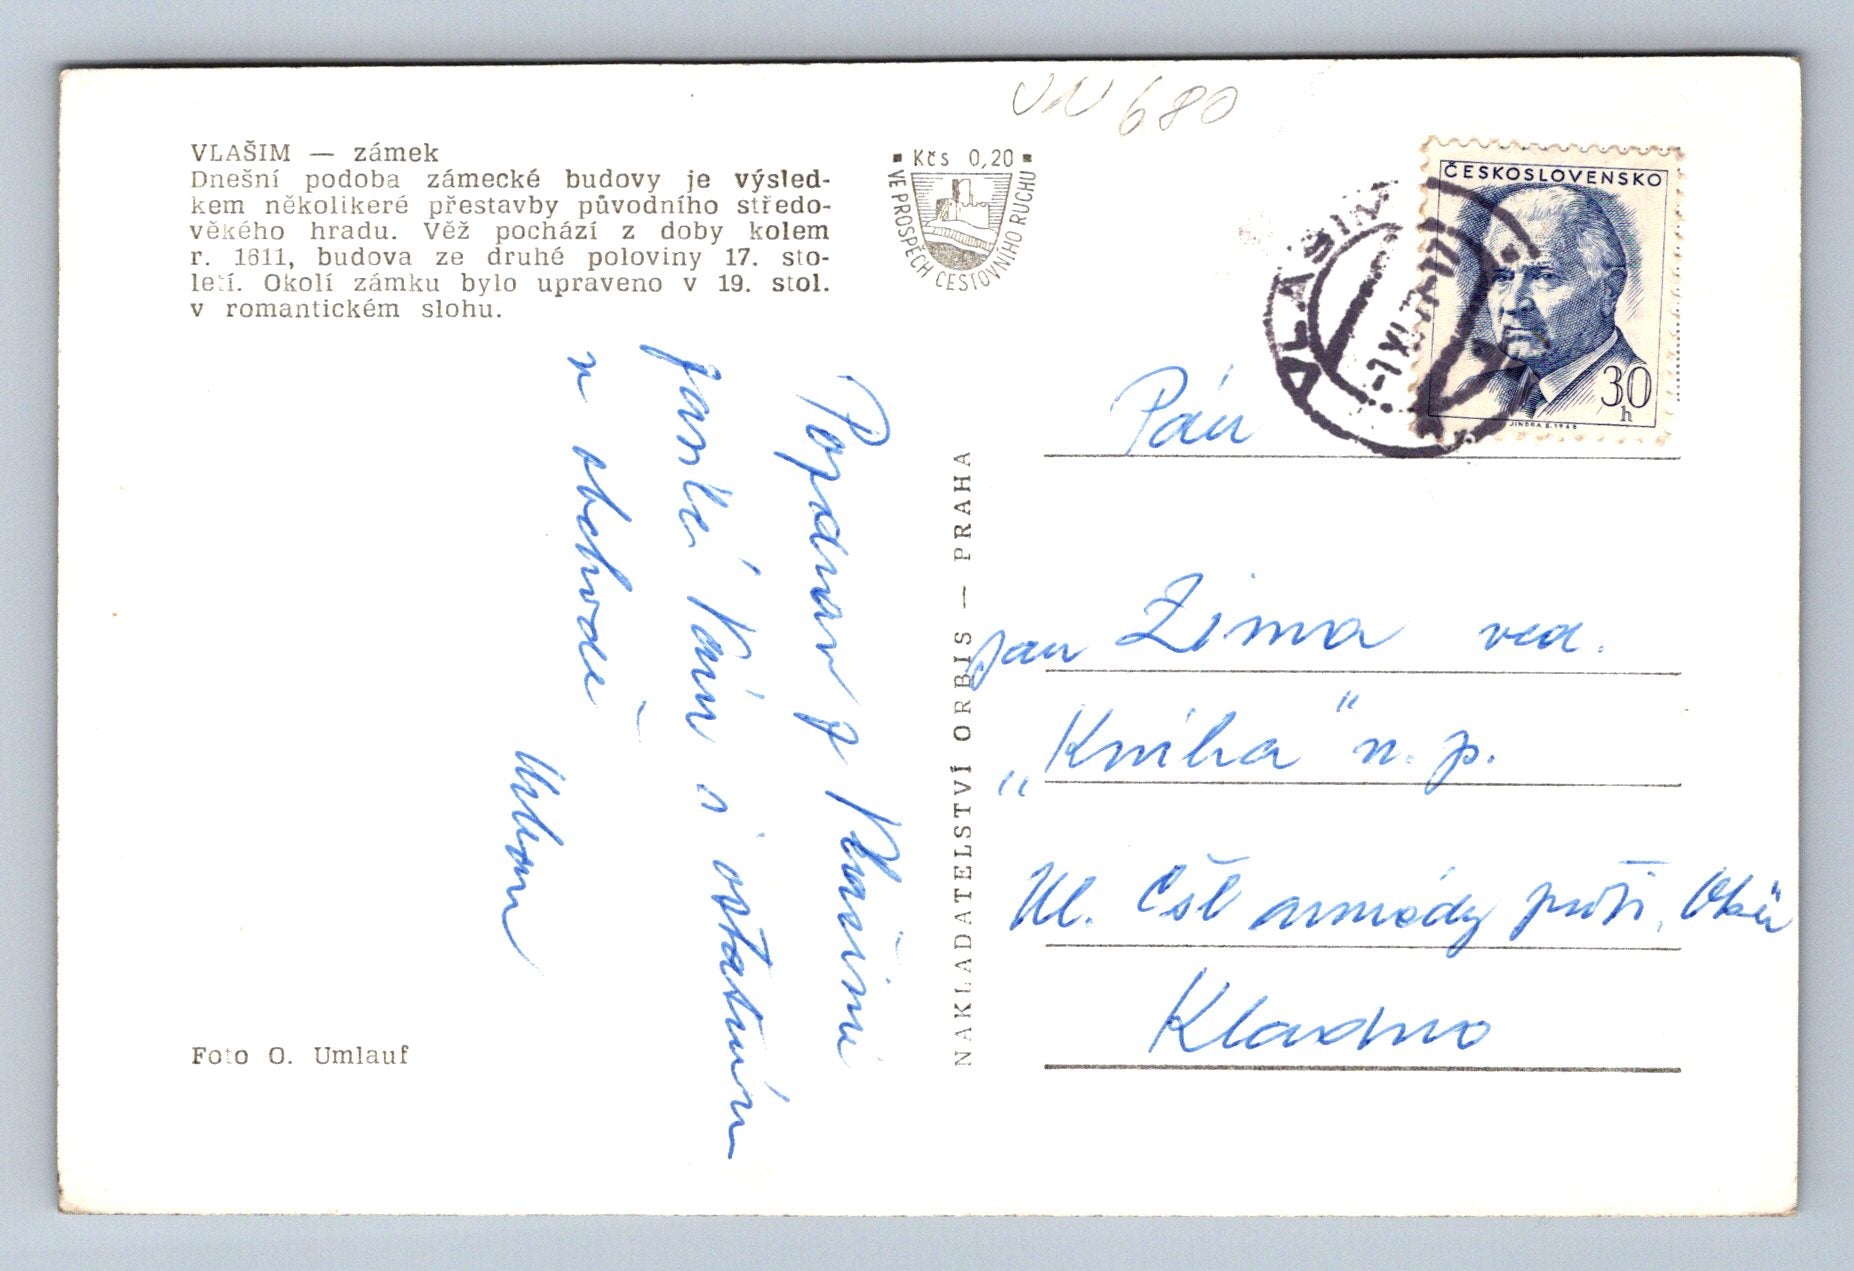 VN 680
VLAŠIM — zámek
Dnešní podoba zámecké budovy je výsled-
kem několikeré přestavby původního středo-
věkého hradu. Věž pochází z doby kolem
r. 1611, budova ze druhé poloviny 17. sto-
letí. Okolí zámku bylo upraveno v 19. stol.
v romantickém slohu.
Kčs 0,20
VE PROSPĚCH CESTOVNÍHO RUCHU
VLAŠIM
ČESKOSLOVENSKO
30
h
JINDRA S. 1968
Pozdrav z Vlašimi
Vám s ostatním
v obchodě
NAKLADATELSTVÍ ORBIS — PRAHA
Pán
Jan Zima ved.
„Kniha" n. p.
Ul. Čsl armády proti
Kladno
Foto O. Umlauf